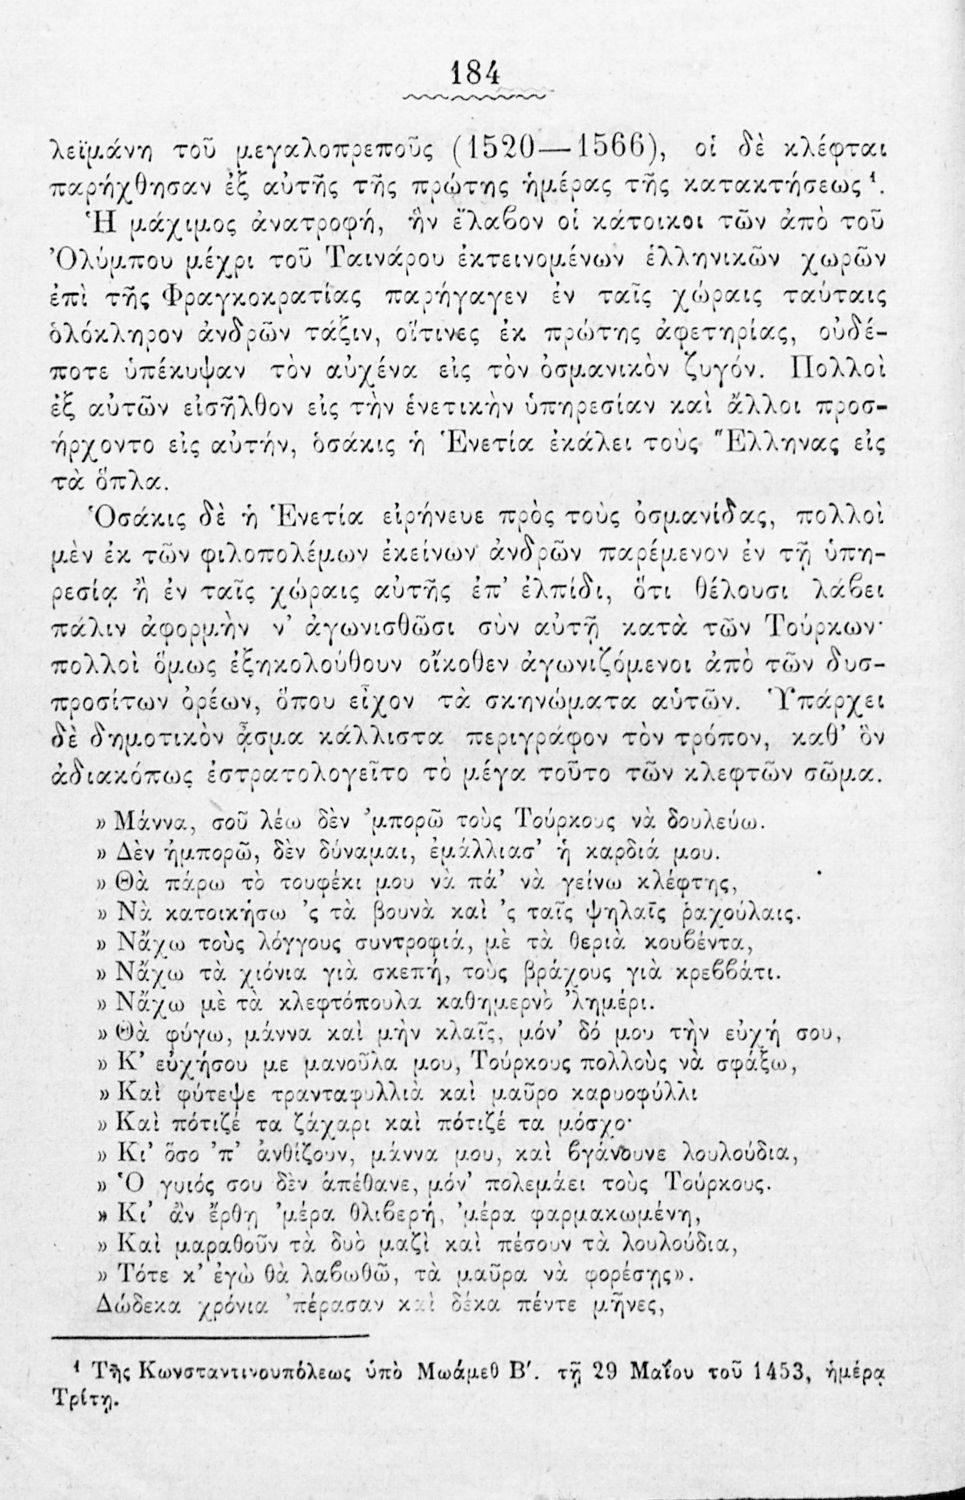 184
λεϊμάνη τοῦ μεγαλοπρεποῦς (1520—1566), οἱ δὲ κλέφται
παρήχθησαν ἐξ αὐτῆς τῆς πρώτης ἡμέρας τῆς κατακτήσεως ¹.
Ἡ μάχιμος ἀνατροφή, ἣν ἔλαβον οἱ κάτοικοι τῶν ἀπὸ τοῦ
Ὀλύμπου μέχρι τοῦ Ταινάρου ἐκτεινομένων ἑλληνικῶν χωρῶν
ἐπὶ τῆς Φραγκοκρατίας παρήγαγεν ἐν ταῖς χώραις ταύταις
ὁλόκληρον ἀνδρῶν τάξιν, οἵτινες ἐκ πρώτης ἀφετηρίας, οὐδέ-
ποτε ὑπέκυψαν τὸν αὐχένα εἰς τὸν ὀσμανικὸν ζυγόν. Πολλοὶ
ἐξ αὐτῶν εἰσῆλθον εἰς τὴν ἑνετικὴν ὑπηρεσίαν καὶ ἄλλοι προσ-
ήρχοντο εἰς αὐτήν, ὁσάκις ἡ Ἑνετία ἐκάλει τοὺς Ἕλληνας εἰς
τὰ ὅπλα.
Ὁσάκις δὲ ἡ Ἑνετία εἰρήνευε πρὸς τοὺς ὀσμανίδας, πολλοὶ
μὲν ἐκ τῶν φιλοπολέμων ἐκείνων ἀνδρῶν παρέμενον ἐν τῇ ὑπη-
ρεσίᾳ ἢ ἐν ταῖς χώραις αὐτῆς ἐπ’ ἐλπίδι, ὅτι θέλουσι λάβει
πάλιν ἀφορμὴν ν’ ἀγωνισθῶσι σὺν αὐτῇ κατὰ τῶν Τούρκων·
πολλοὶ ὅμως ἐξηκολούθουν οἴκοθεν ἀγωνιζόμενοι ἀπὸ τῶν δυσ-
προσίτων ὀρέων, ὅπου εἶχον τὰ σκηνώματα αὑτῶν. Ὑπάρχει
δὲ δημοτικὸν ᾆσμα κάλλιστα περιγράφον τὸν τρόπον, καθ’ ὃν
ἀδιακόπως ἐστρατολογεῖτο τὸ μέγα τοῦτο τῶν κλεφτῶν σῶμα.
» Μάννα, σοῦ λέω δὲν ’μπορῶ τοὺς Τούρκους νὰ δουλεύω.
» Δὲν ἠμπορῶ, δὲν δύναμαι, ἐμάλλιασ’ ἡ καρδιά μου.
» Θὰ πάρω τὸ τουφέκι μου νὰ πά’ νὰ γείνω κλέφτης,
» Νὰ κατοικήσω ’ς τὰ βουνὰ καὶ ’ς ταῖς ψηλαῖς ῥαχούλαις.
» Νἄχω τοὺς λόγγους συντροφιά, μὲ τὰ θεριὰ κουβέντα,
» Νἄχω τὰ χιόνια γιὰ σκεπή, τοὺς βράχους γιὰ κρεββάτι.
» Νἄχω μὲ τὰ κλεφτόπουλα καθημερνὸ ’λημέρι.
» Θὰ φύγω, μάννα καὶ μὴν κλαῖς, μόν’ δό μου τὴν εὐχή σου,
» Κ’ εὐχήσου με μανοῦλα μου, Τούρκους πολλοὺς νὰ σφάξω,
» Καὶ φύτεψε τρανταφυλλιὰ καὶ μαῦρο καρυοφύλλι
» Καὶ πότιζέ τα ζάχαρι καὶ πότιζέ τα μόσχο·
» Κι’ ὅσο ’π’ ἀνθίζουν, μάννα μου, καὶ βγάνουνε λουλούδια,
» Ὁ γυιός σου δὲν ἀπέθανε, μόν’ πολεμάει τοὺς Τούρκους.
» Κι’ ἂν ἔρθῃ ’μέρα θλιβερή, ’μέρα φαρμακωμένη,
» Καὶ μαραθοῦν τὰ δυὸ μαζὶ καὶ πέσουν τὰ λουλούδια,
» Τότε κ’ ἐγὼ θὰ λαβωθῶ, τὰ μαῦρα νὰ φορέσῃς».
Δώδεκα χρόνια ’πέρασαν καὶ δέκα πέντε μῆνες,
¹ Τῆς Κωνσταντινουπόλεως ὑπὸ Μωάμεθ Β′. τῇ 29 Μαΐου τοῦ 1453, ἡμέρᾳ
Τρίτῃ.